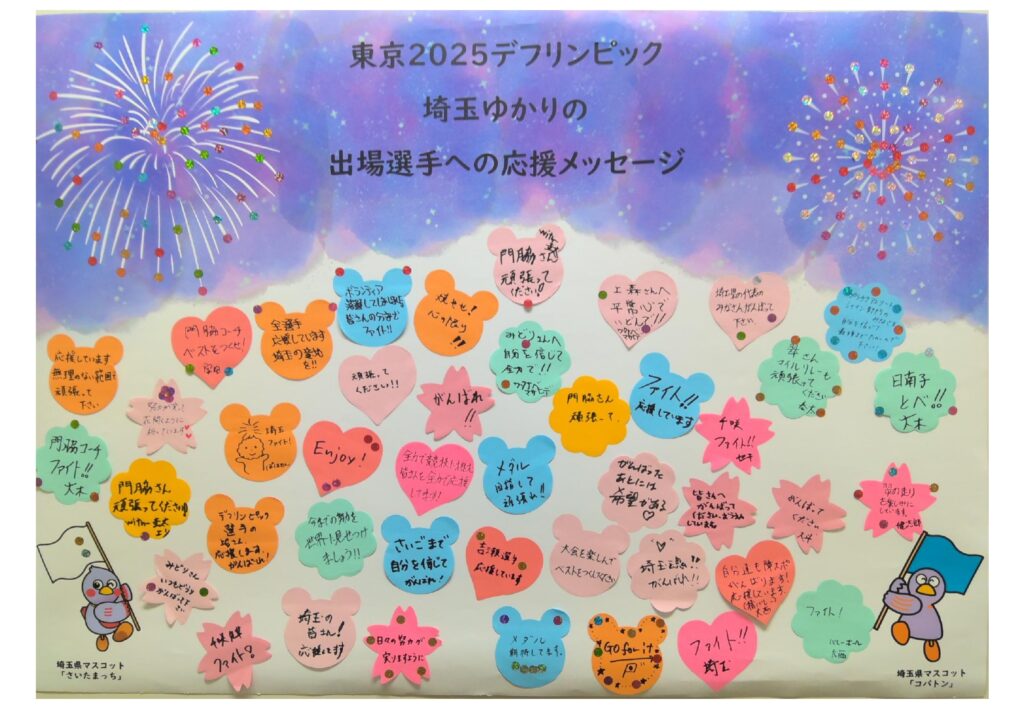 東京2025デフリンピック
埼玉ゆかりの
出場選手への応援メッセージ
門脇さん
頑張って
ください!
ボランティア
皆さんの分まで
ファイト!!
全選手
応援しています
埼玉の意地
を!!
門脇コーチ
ベストをつくせ!
応援しています
無理のない範囲で
頑張って
下さい
みどりさんへ
自分を信じて
全力で!!
平常心で
いどんで!!
埼玉県の代表の
みなさんがんばって
下さい
マイルリレーも
頑張って
ください
日南子
とべ!!
大木
頑張って
ください!!
がんばれ
!!
門脇さん
頑張って
ファイト!!
応援しています
千咲
ファイト!!
花開くように
埼玉
ファイト!
Enjoy!
皆さんを全力で応援
してます!
メダル
目指して
頑張れ!!
がんばった
あとには
希望がある
皆さんへ
がんばって
ください
がんばって
ください
門脇コーチ
ファイト!!
大木
門脇さん
頑張ってください!
デフリンピック
選手の
皆さん
応援します
がんばれ!
今までの努力を
世界に見せつけ
ましょう!!
さいごまで
自分を信じて
がんばれ!
応援しています
大会を楽しんで
ベストをつくして下さい
がんばれ!!
自分達も
がんばります!
応援しています!
みどりさん
ファイト!
埼玉の
皆さん!
応援してます
日々の努力が
実りますように
メダル
期待してます。
Go for it
ファイト!!
埼玉
ファイト!
バレーボール
埼玉県マスコット
「さいたまっち」
埼玉県マスコット
「コバトン」